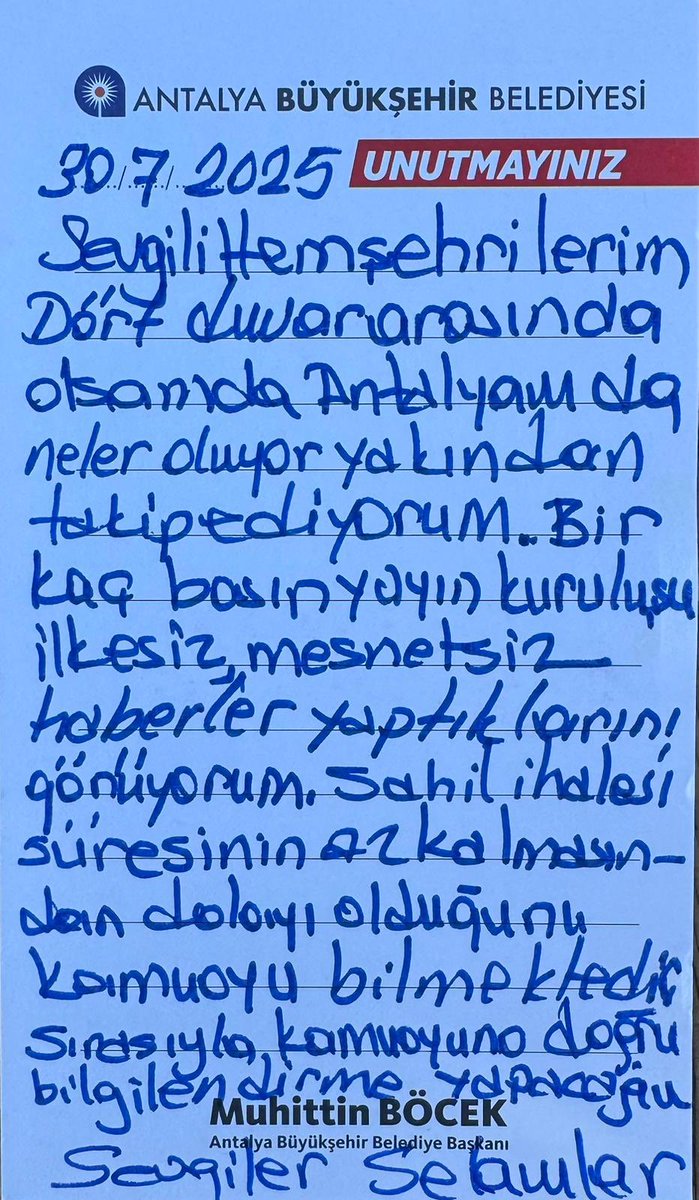 ANTALYA BÜYÜKŞEHİR BELEDİYESİ
30/7/2025 UNUTMAYINIZ
Sevgili Hemşehrilerim
Dört duvar arasında
olsamda Antalyam da
neler oluyor yakından
takip ediyorum.. Bir
kaç basın yayın kuruluşu
ilkesiz, mesnetsiz
haberler yaptıklarını
görüyorum. Sahil ihalesi
süresinin az kalmasın-
dan dolayı olduğunu
kamuoyu bilmektedir
sırasıyla, kamuoyuna doğru
bilgilendirme yapacağım
Muhittin BÖCEK
Antalya Büyükşehir Belediye Başkanı
Sevgiler Selamlar